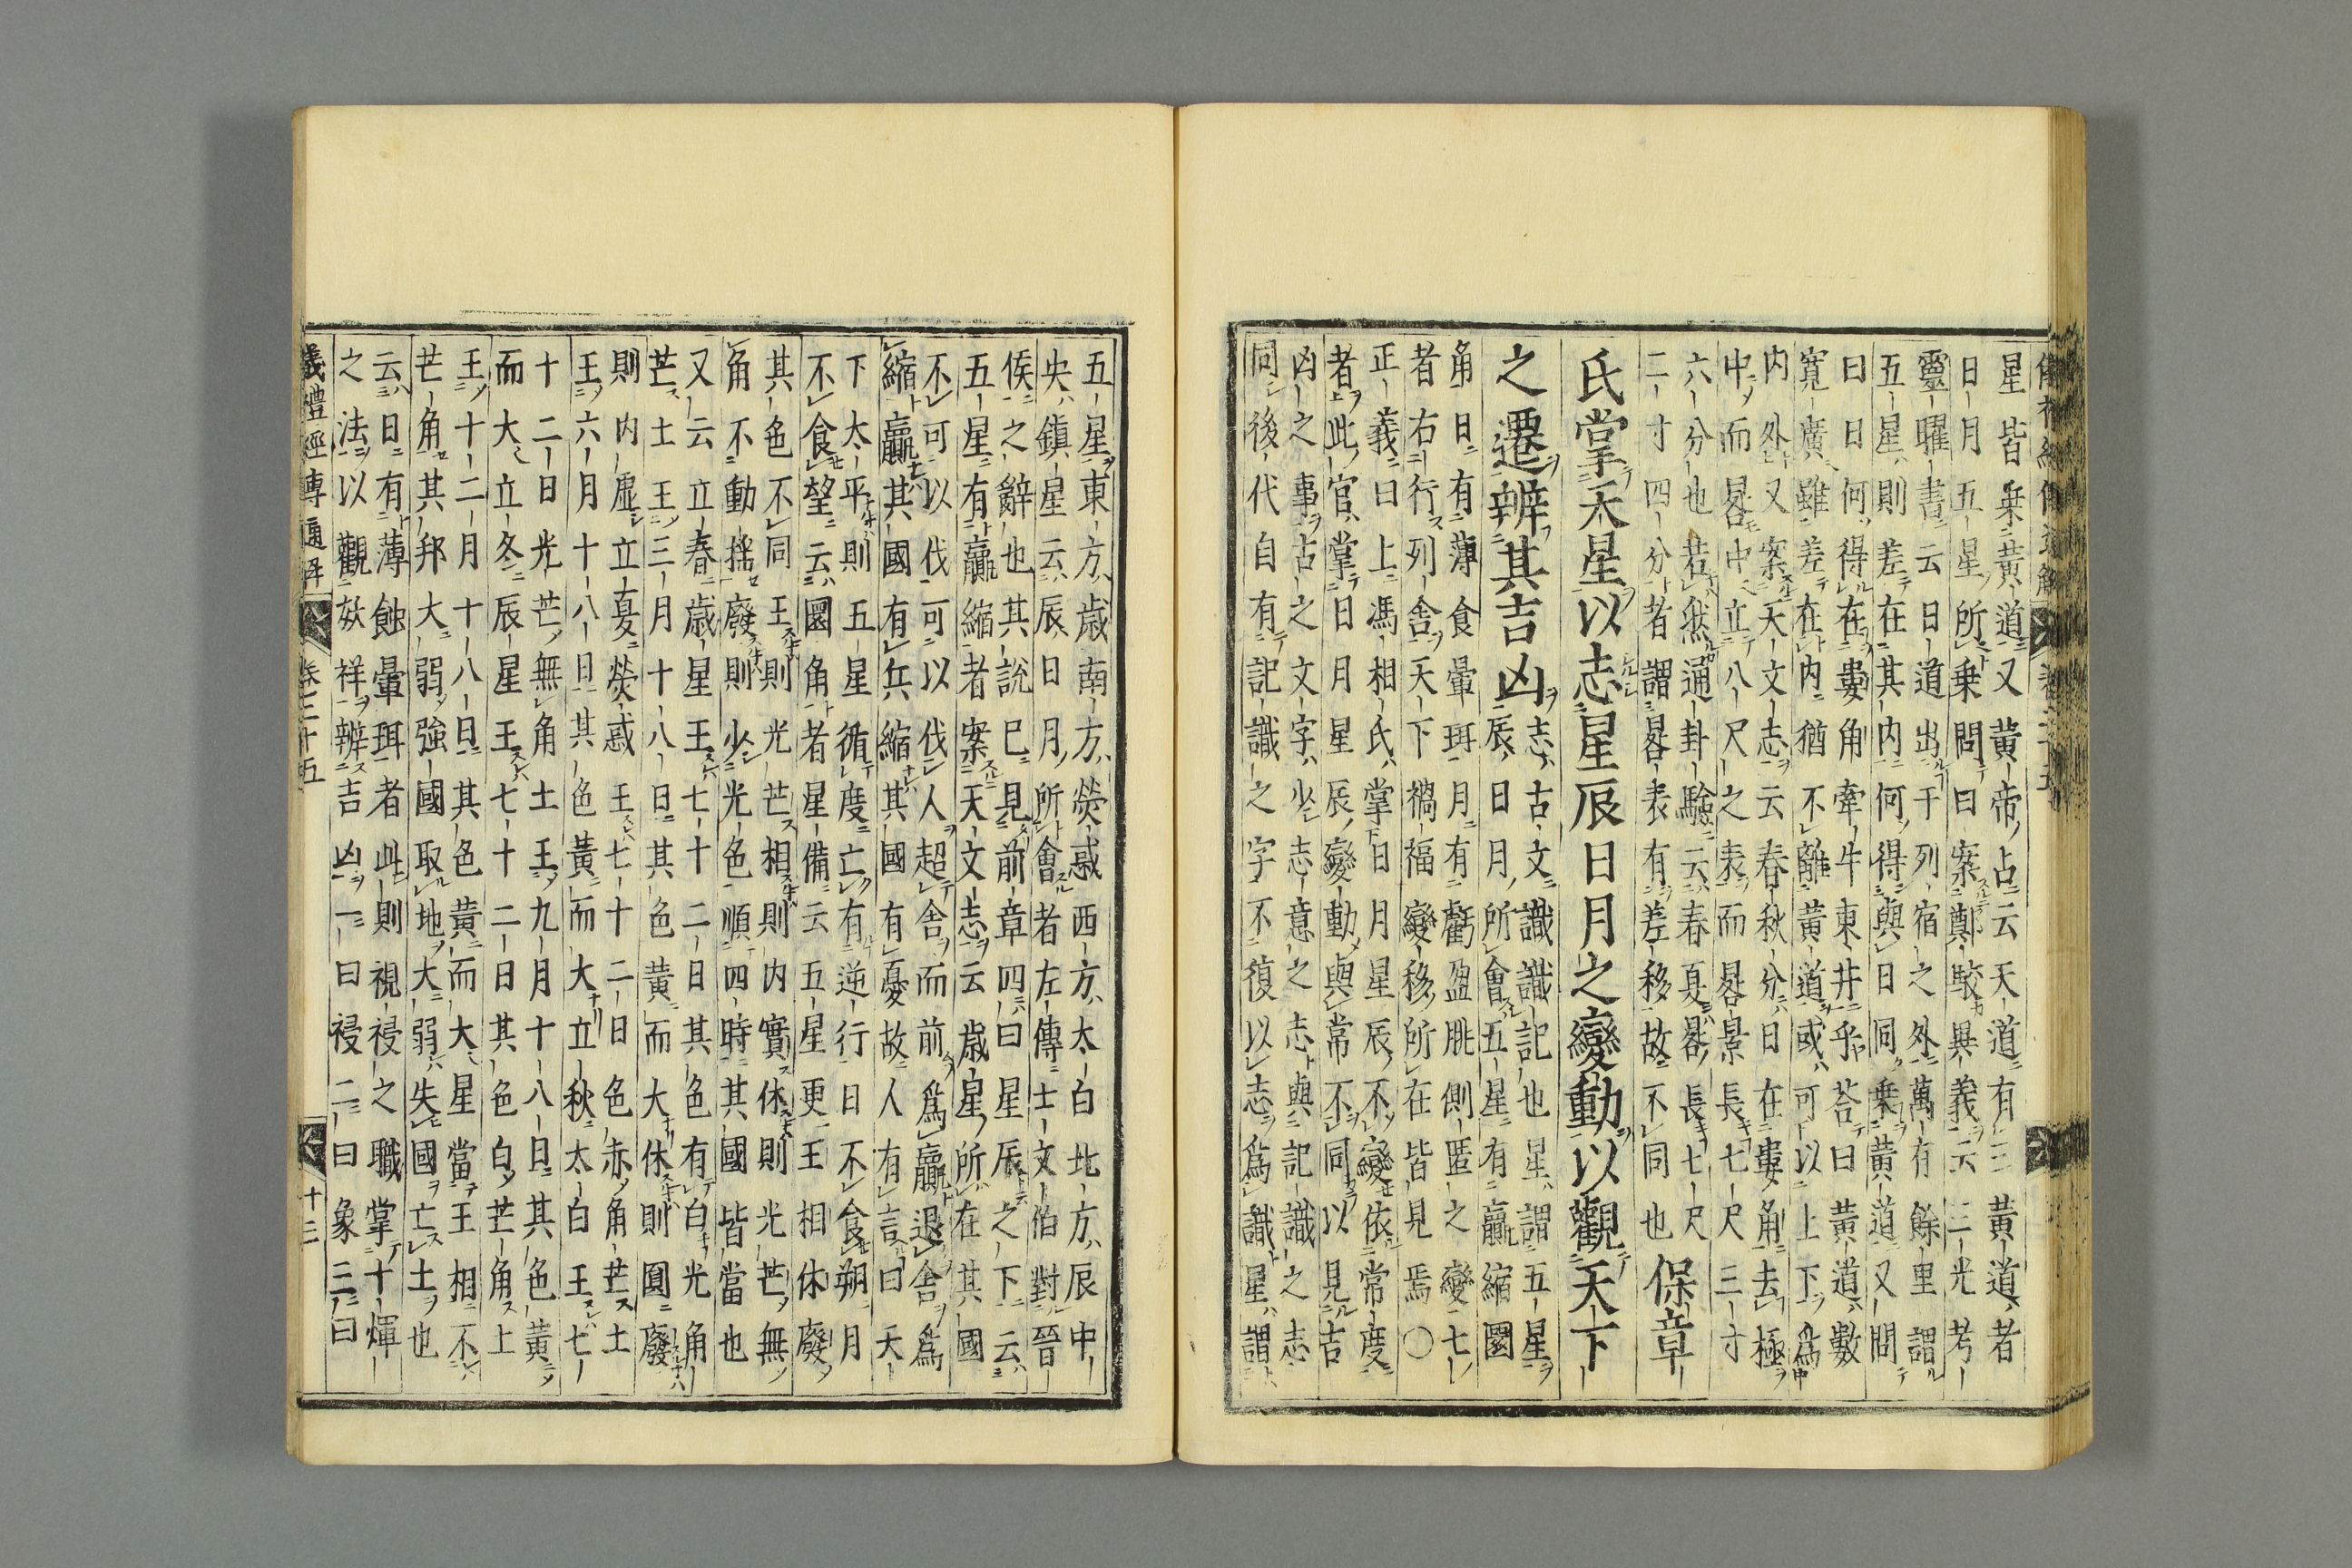 星皆乗黃道又黃帝占云天道有三黃道者
日月五星所乗問曰案鄭駮異義云三光考
靈曜書云日道出于列宿之外萬有餘里謂
五星則差在其内何得與日同乗黃道又問
曰日何得在婁角牽牛東井乎荅曰黃道數
寛廣雖差在内猶不離黃道或可以上下爲
内外又案天文志云春秋分日在婁角去極
中而晷中立八尺之表而晷景長七尺三寸
六分也若然通卦驗云春夏晷長七尺
二寸四分者謂晷表有差移故不同也保章
氏掌天星以志星辰日月之變動以觀天下
之遷辨其吉凶
志古文識識記也星謂五星
辰日月所會五星有贏縮圜
角日有薄食暈珥月有虧盈朓側匿之變七
者右行列舎天下禍福變移所在皆見焉〇
正義曰上馮相氏掌日月星辰不變依常度
者此官掌日月星辰變動與常不同以見吉
凶之事古之文字少志意之志與記識之志
同後代自有記識之字不復以志爲識星謂
五星東方歳南方熒惑西方太白北方辰中
央鎮星云辰日月所會者左傳士文伯對晉
侯之辭也其説巳見前章四曰星辰之下云
五星有贏縮者案天文志云歳星所在其國
不可以伐可以伐人超舎而前爲贏退舎爲
縮贏其國有兵縮其國有憂故人有言曰天
下太平則五星循度亡有逆行日不食朔月
不食望云圜角者星備云五星更王相休廢
其色不同王則光芒相則内實休則光芒無
角不動揺廢則少光色順四時其國皆當也
又云立春歳星王七十二日其色有白光角
芒土王三月十八日其色黃而大休則圓廢
則内虚立夏熒惑王七十二日色赤角芒土
王六月十八日其色黃而大立秋太白王七
十二日光芒無角土王九月十八日其色黃
而大立冬辰星王七十二日其色白芒角上
王十二月十八日其色黃而大星當王相不
芒角其邦大弱強國取地大弱失國亡土也
云日有薄蝕暈珥者此則視祲之職掌十煇
之法以觀妖祥辨吉凶一曰祲二曰象三曰
儀禮經傳通解 卷二十五 十三